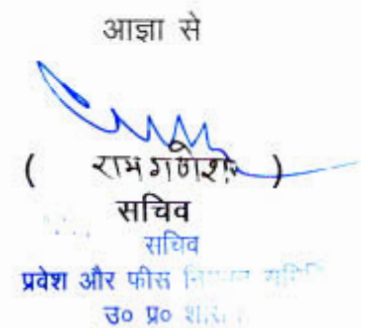 आज्ञा से
( राम गणेश )
सचिव
सचिव
प्रवेश और फीस
उ० प्र०